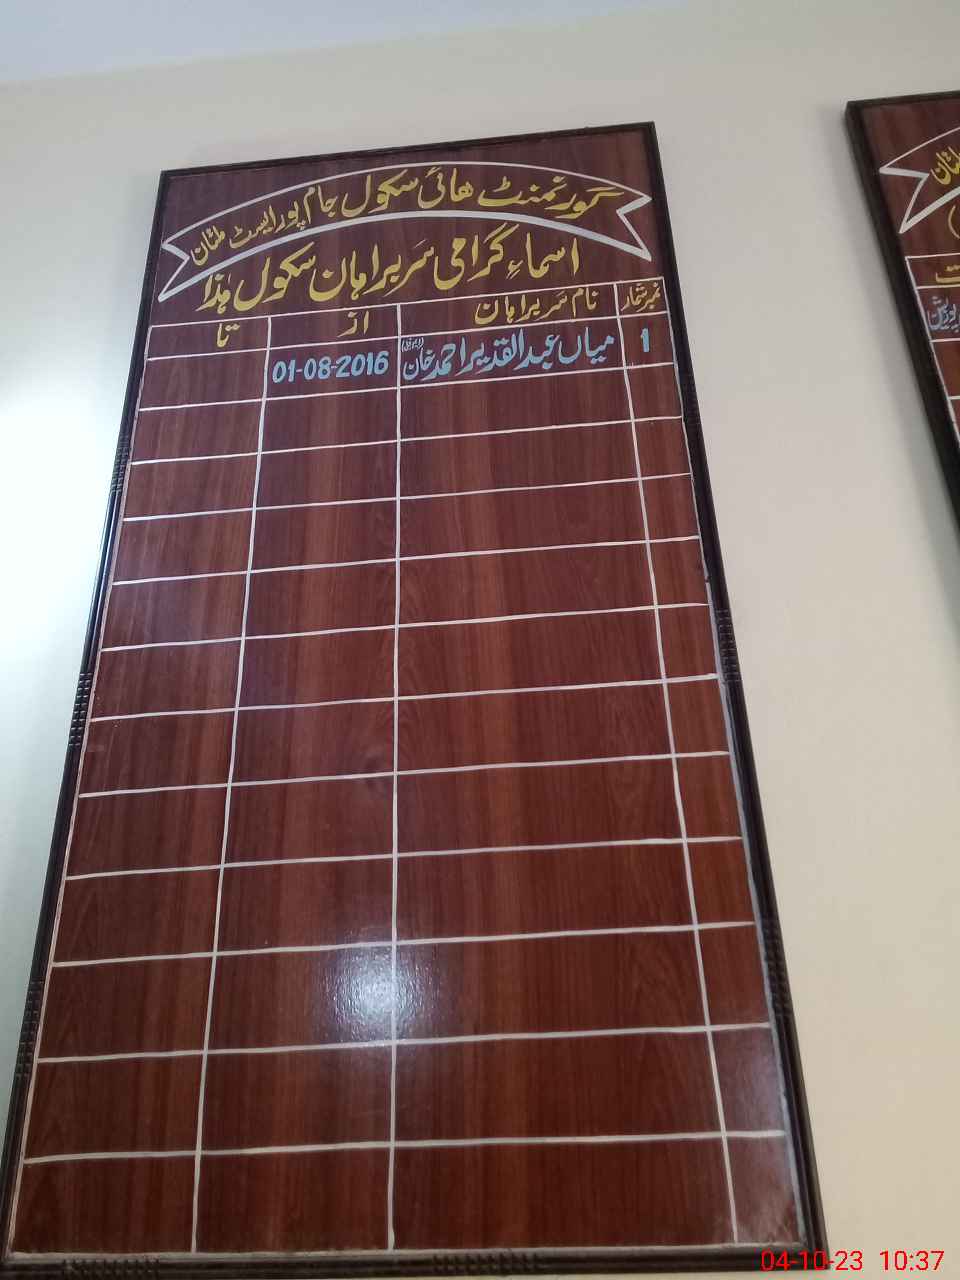 گورنمنٹ ھائی سکول جام پور ایسٹ ملتان
اسماءِ گرامی سربراہان سکول ہٰذا
نمبر شمار نام سربراہان از تا
1 میاں عبدالقدیر احمد خان 01-08-2016
ملتان
04-10-23 10:37